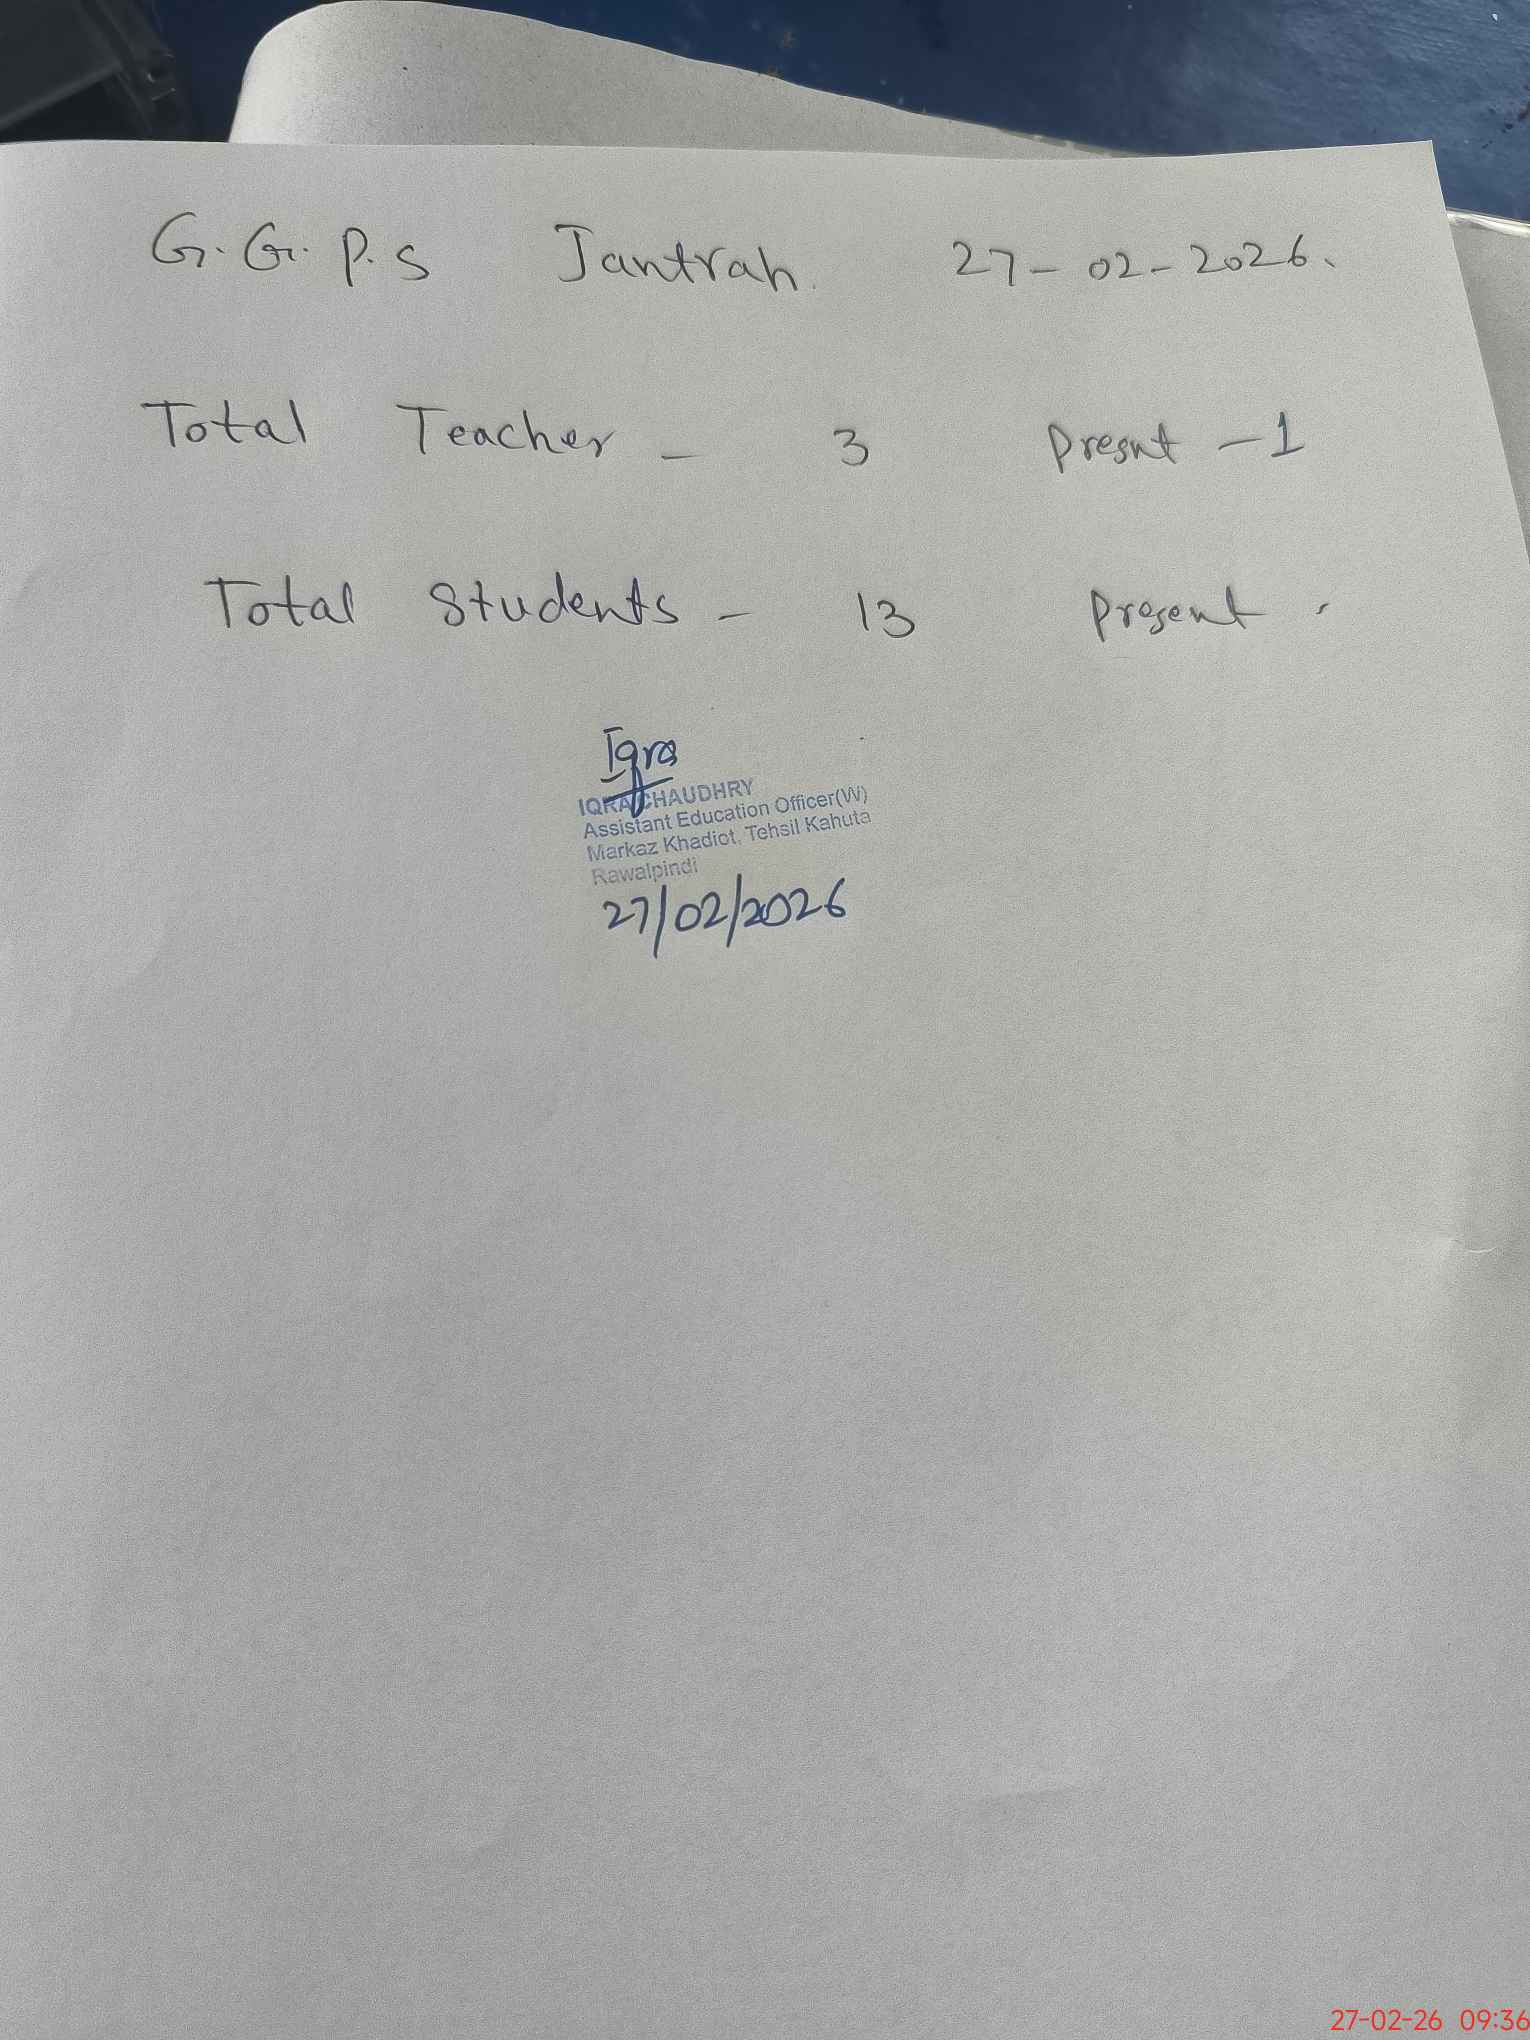 G.G.P.S Jantrah. 27-02-2026.
Total Teacher - 3 Presnt - 1
Total Students - 13 Present -
Iqra
IQRA CHAUDHRY
Assistant Education Officer(W)
Markaz Khadiot, Tehsil Kahuta
Rawalpindi
27/02/2026
27-02-26 09:36